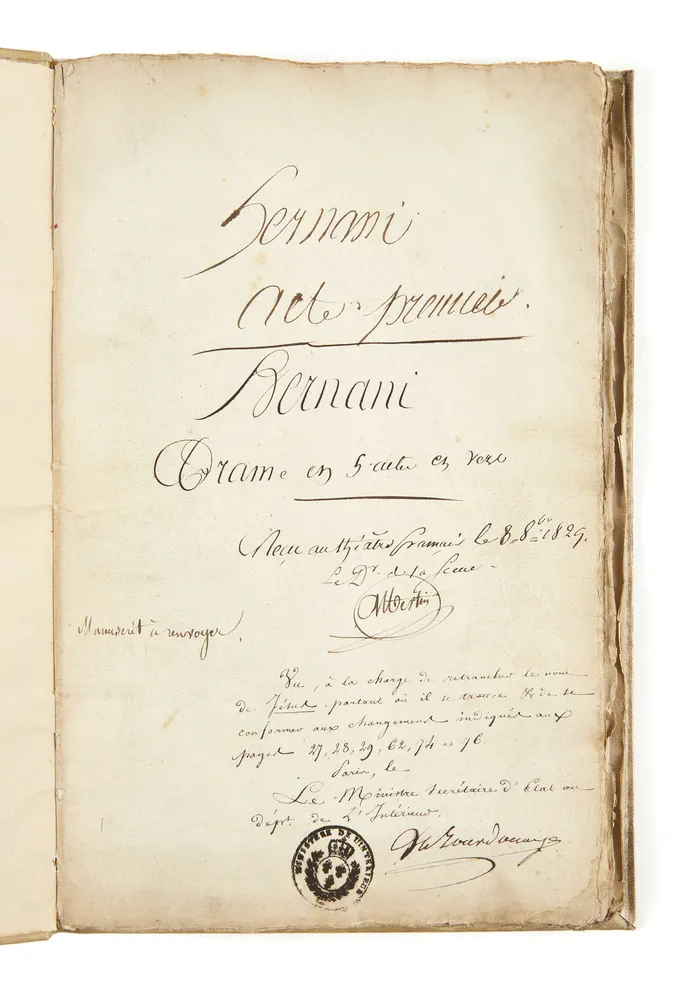 Hernani
acte premier.
Hernani
Drame en 5 actes en vers
Reçu au théâtre français le 8 8bre 1829.
Le Dr. de la Scène
Albertin
Manuscrit à renvoyer.
Vu, à la charge de retrancher le nom
de Jésus partout où il se trouve & de se
conformer aux changements indiqués aux
pages 27, 28, 29, 62, 74 et 76.
Paris, le
Le Ministre Secrétaire d'Etat au
dépt. de l'Intérieur.
MINISTERE DE L'INTERIEUR